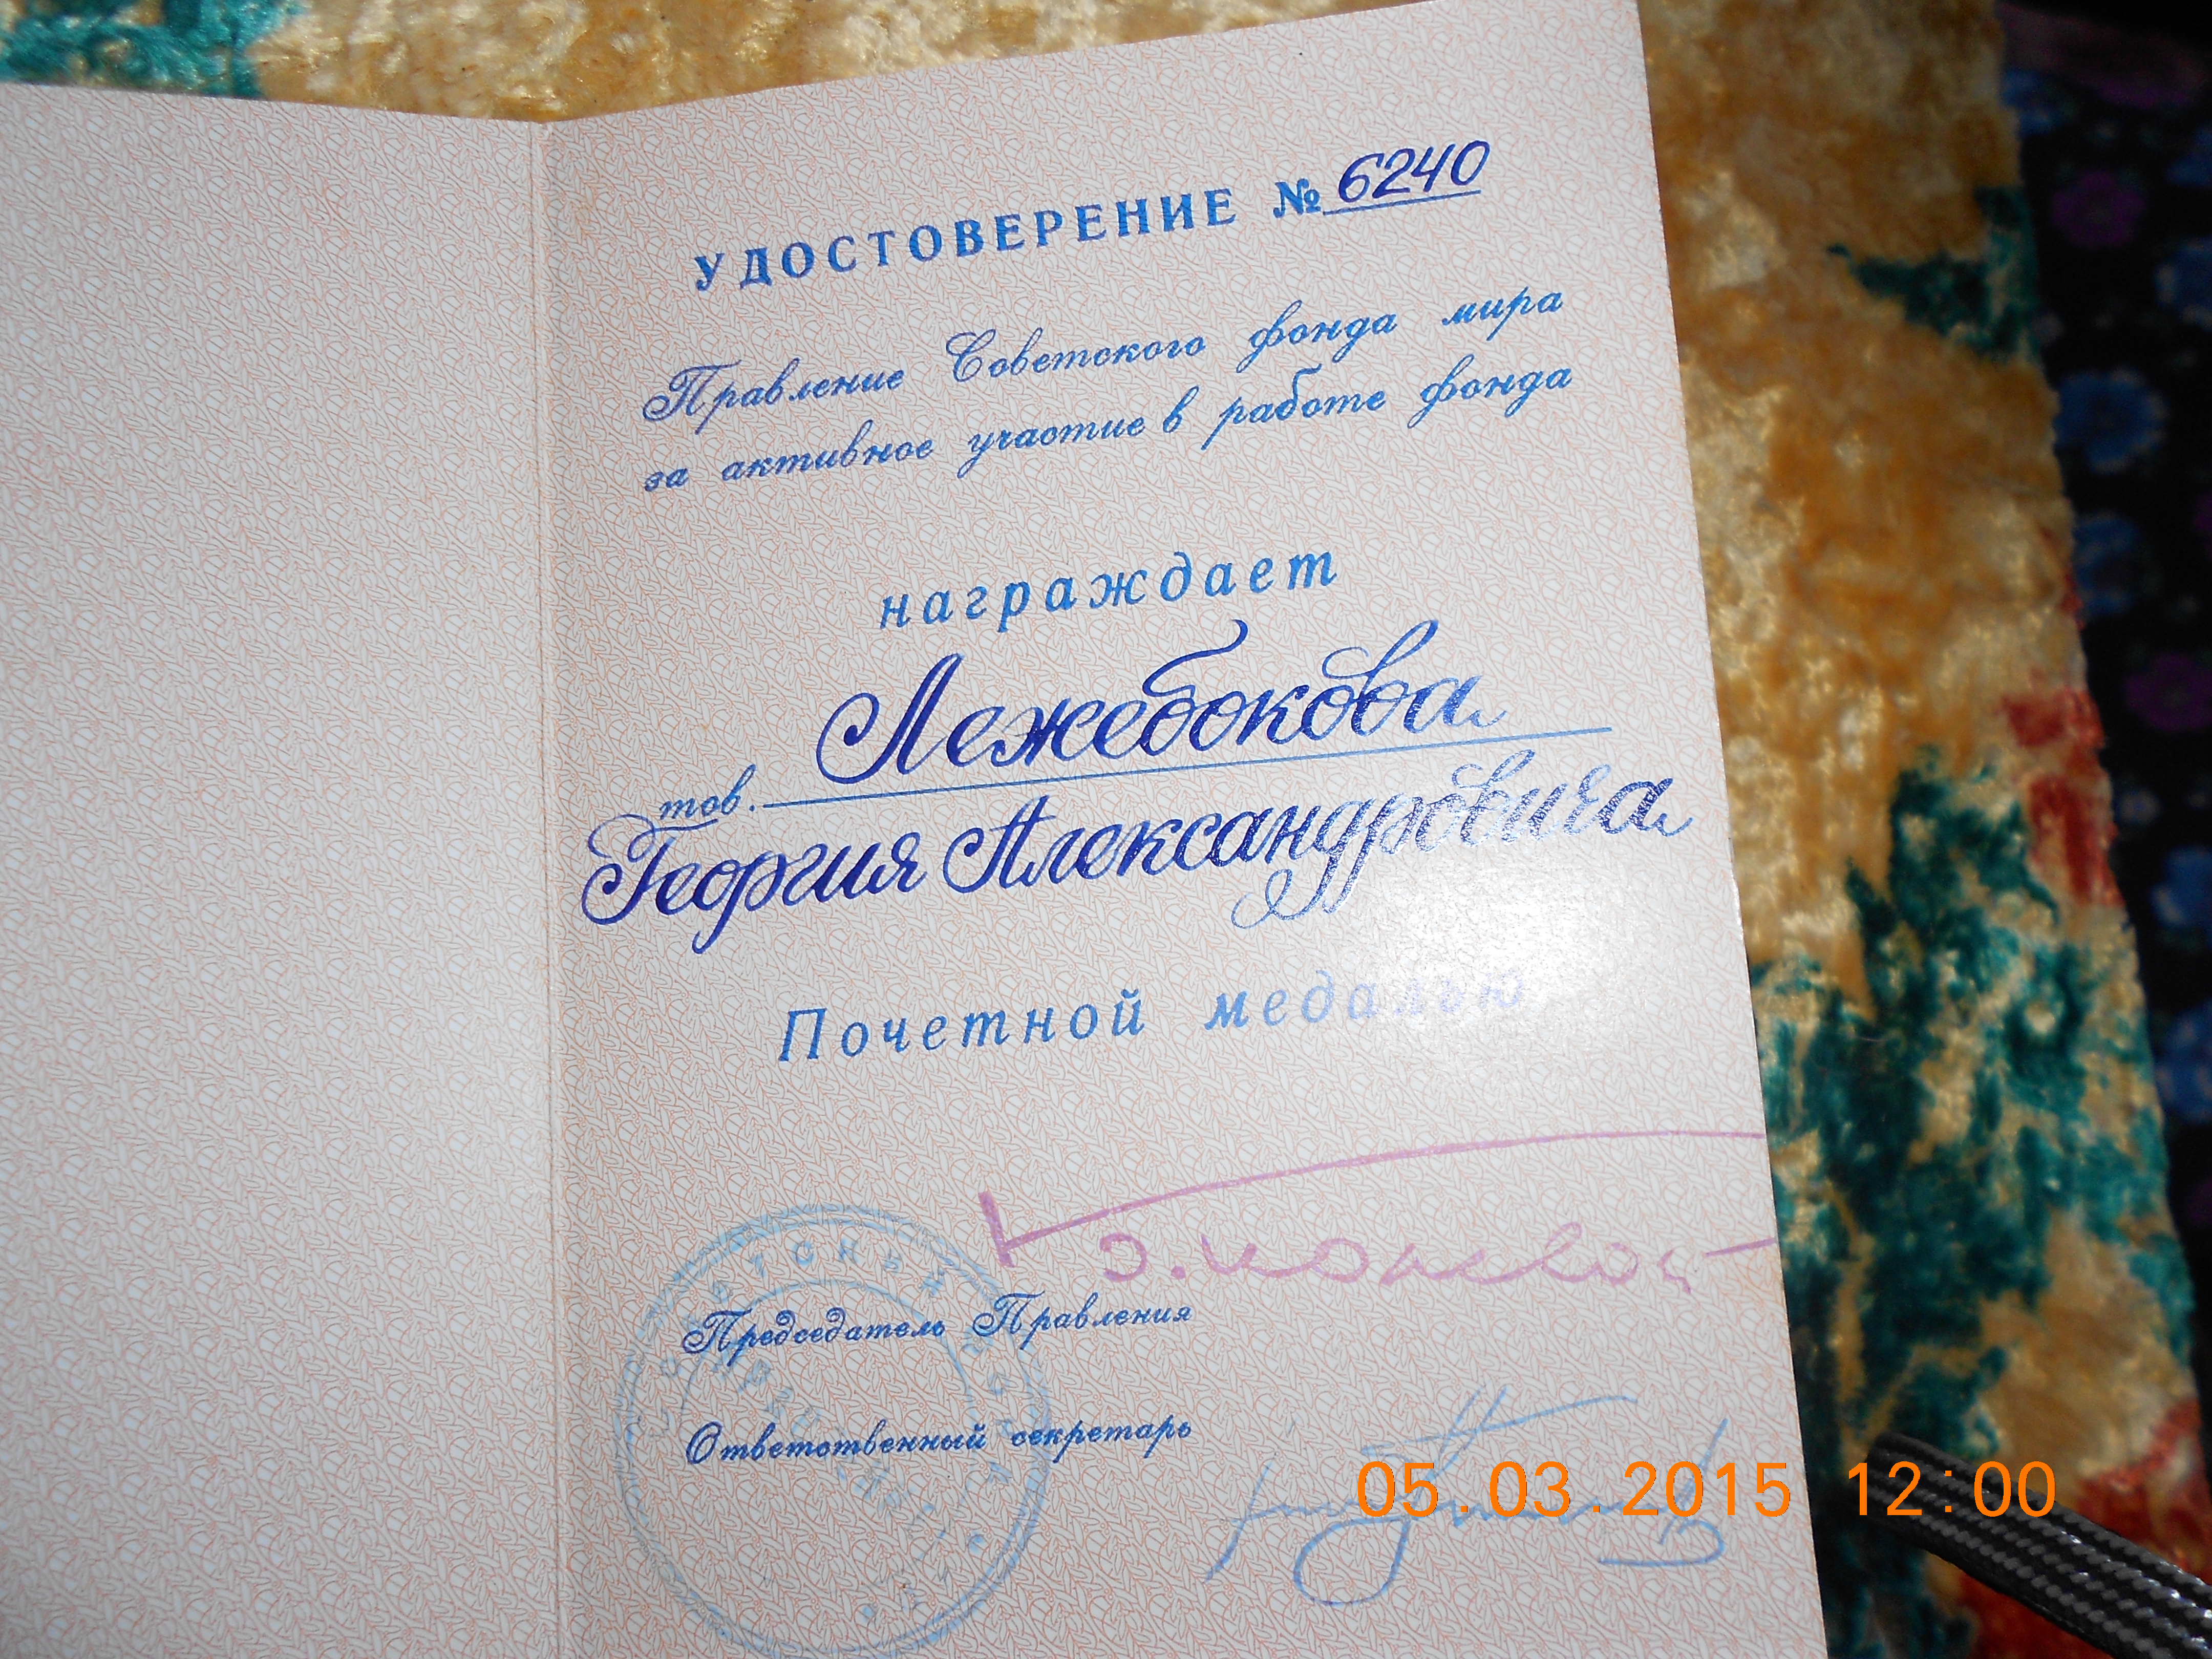 УДОСТОВЕРЕНИЕ № 6240
Правление Советского фонда мира
за активное участие в работе фонда
награждает
тов. Лежебокова
Георгия Александровича
Почетной медалью
Председатель Правления
Ответственный секретарь
05.03.2015 12:00